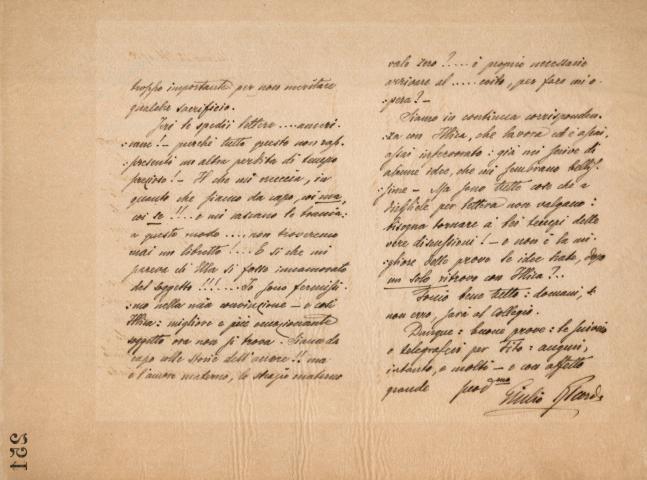 troppo importante per non meritare
qualche sacrificio.
Jeri le spedii lettere .... ameri-
:cane! – purchè tutto questo non rap-
:presenti un altra perdita di tempo
prezioso! – Il che mi secca, in
quanto che siamo da capo, coi ma,
coi se !!.. e mi cascano le braccia:
a questo modo .... non troveremo
mai un libretto! ... E sì che mi
pareva di Ella si fosse innamorato
del soggetto !!! .... Io sono fermissi-
:mo nella mia convinzione – e così
Illica: migliore e più emozionante
soggetto ora non si trova. Siamo da
capo colle storie dell'amore!! ma
è l'amore materno, lo strazio materno
vale zero? ... è proprio necessario
arrivare al .... coito, per fare un'o-
:pera? –
Siamo in continua corrisponden-
:za con Illica, che lavora ed è assai,
assai infervorato: già mi scrive di
alcune idee, che mi sembrano bellis-
:sime – Ma sono tutte cose che
per lettera non valgono:
bisogna tornare a bei tempi delle
vere discussioni! – e non è la mi-
:gliore delle prove le idee nate, dopo
un solo ritrovo con Illica?..
Tonio bene tutto: domani, se
non erro, sarà al Collegio.
Dunque: buone prove: le scrivo
e telegrafai per Tito: auguri,
intanto, e molti – e con affetto
grande suo d.mo
Giulio Ricordi
521